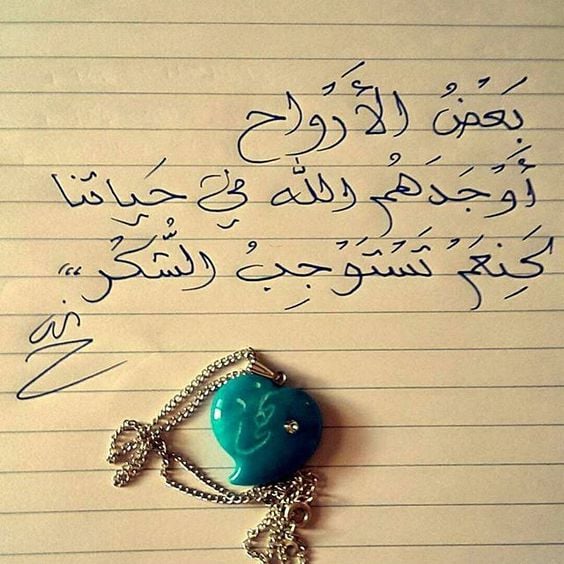 بَعْضُ الأَرْوَاح
أَوْجَدَهُم الله في حَياتنا
كَنِعَمْ تَسْتَوْجِبُ الشُّكْرُ ،،